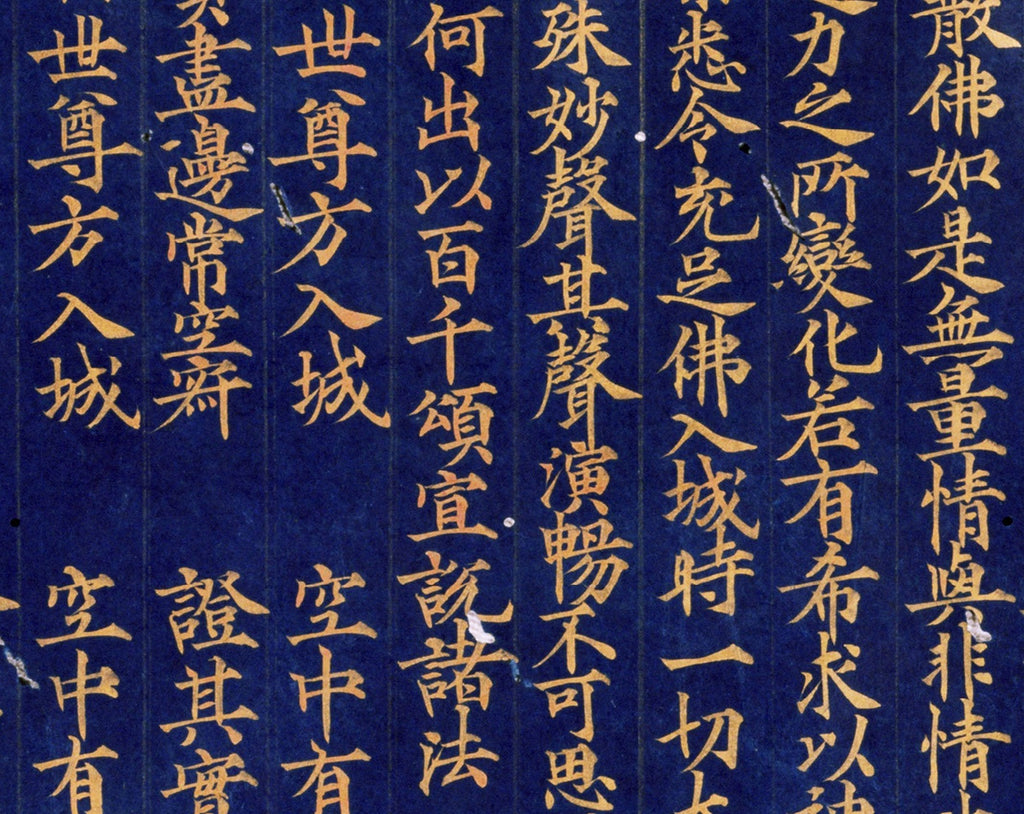 散佛如是無量情與非情
力之所變化若有希求以神
悉令充足佛入城時一切大
殊妙聲其聲演暢不可思
何出以百千頌宣說諸法
世尊方入城　空中有
盡邊常空寂　證其實
世尊方入城　空中有